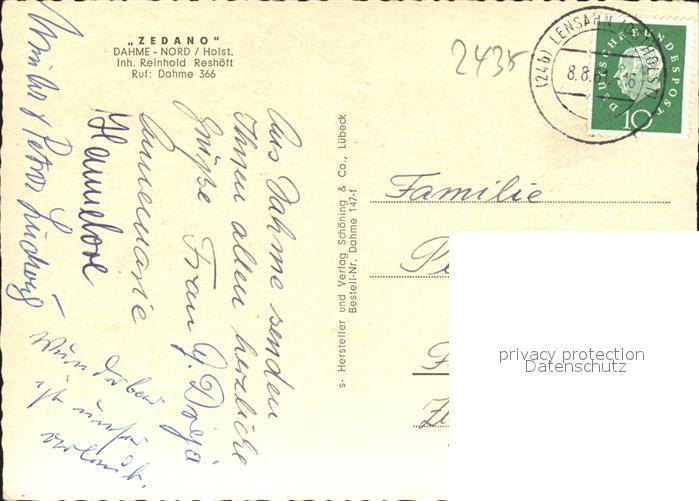 „ZEDANO"
DAHME - NORD / Holst.
Inh. Reinhold Reshöft
Ruf: Dahme 366
2435
(24b) LENSAHN (OSTHOLST)
8.8.61-16
DEUTSCHE BUNDESPOST
10
Aus Dahme senden
Ihnen allen herzliche
Grüße Frau G.
Annemarie
Hannelore
Petra Ludwig
Wunderbar
ist unser
Urlaub.
s- Hersteller und Verlag Schöning & Co., Lübeck
Bestell-Nr. Dahme 147-f
Familie
privacy protection
Datenschutz